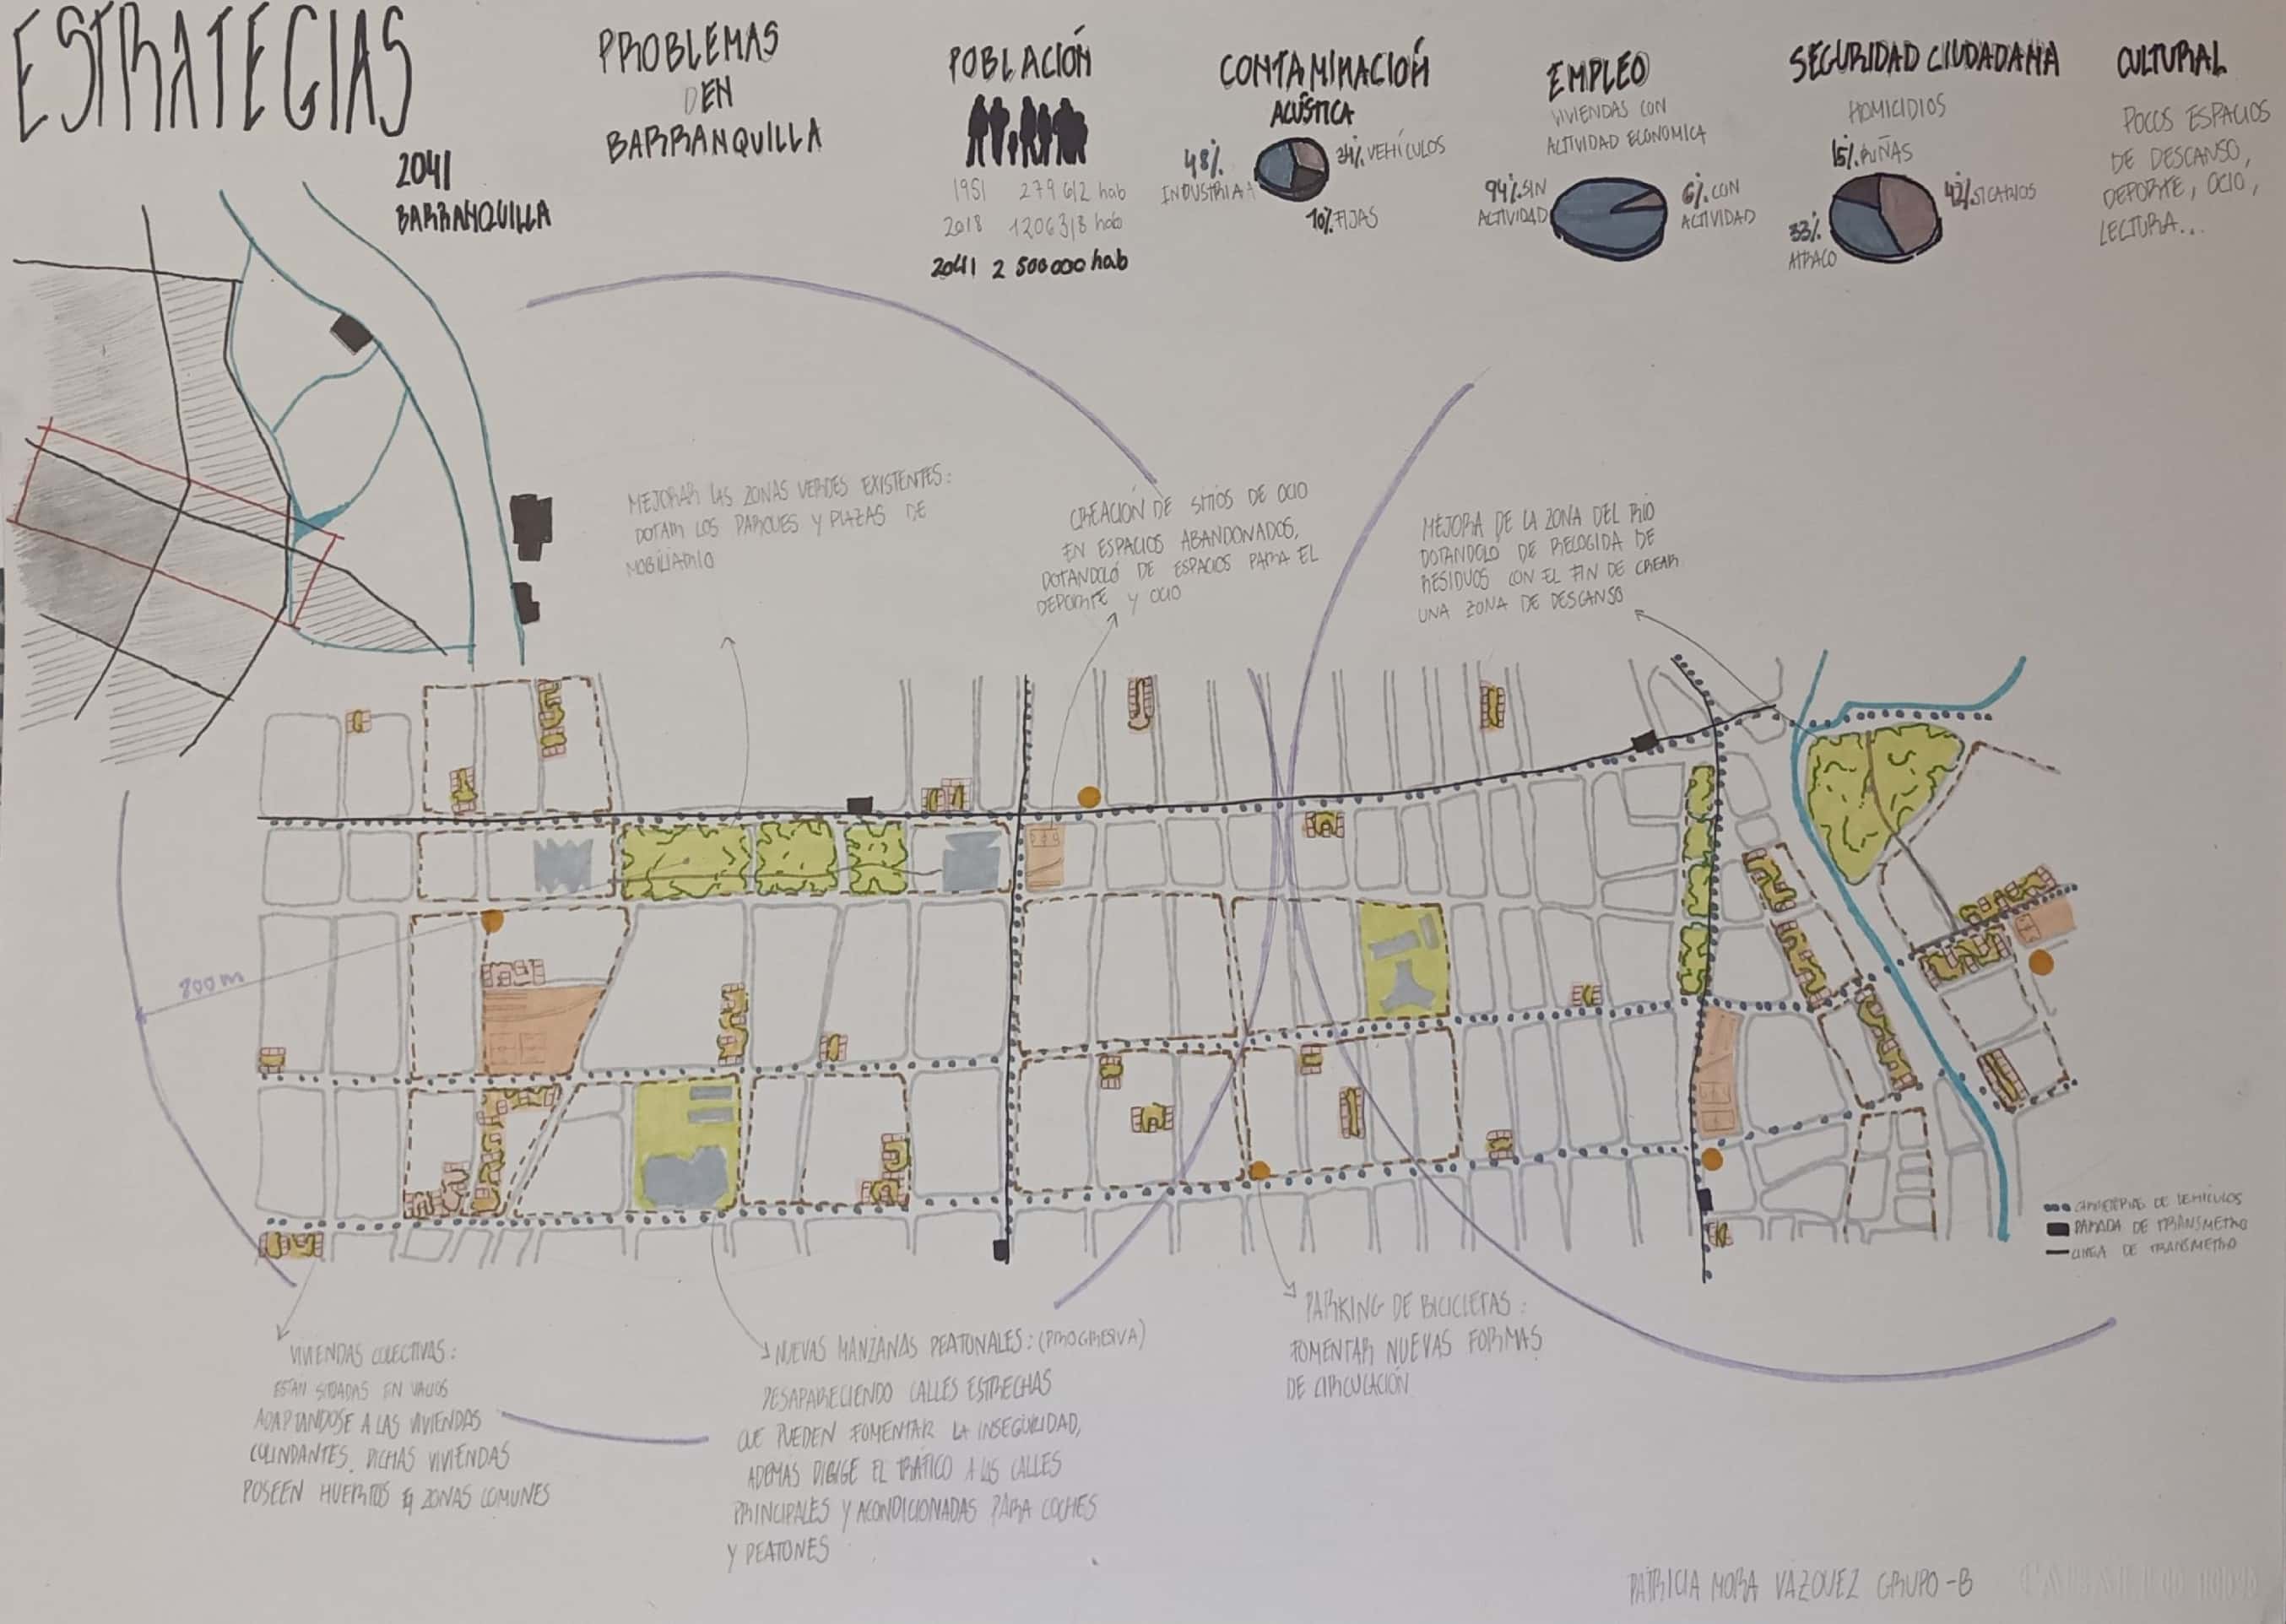 ESTRATEGIAS
2041
BARRANQUILLA
PROBLEMAS
EN
BARRANQUILLA
POBLACIÓN
1951 279 612 hab
2018 1206318 hab
2041 2 500 000 hab
CONTAMINACIÓN
ACÚSTICA
48%
INDUSTRIA
34% VEHÍCULOS
10% FIJAS
EMPLEO
VIVIENDAS CON
ACTIVIDAD ECONOMICA
94% SIN
ACTIVIDAD
6% CON
ACTIVIDAD
SEGURIDAD CIUDADANA
HOMICIDIOS
15% RIÑAS
42% SICARIOS
33%
ATRACO
CULTURAL
POCOS ESPACIOS
DE DESCANSO,
DEPORTE, OCIO,
LECTURA...
MEJORAR LAS ZONAS VERDES EXISTENTES:
DOTAR LOS PARQUES Y PLAZAS DE
MOBILIARIO
CREACIÓN DE SITIOS DE OCIO
EN ESPACIOS ABANDONADOS,
DOTANDOLO DE ESPACIOS PARA EL
DEPORTE Y OCIO
MEJORA DE LA ZONA DEL RIO
DOTANDOLO DE RECOGIDA DE
RESIDUOS CON EL FIN DE CREAR
UNA ZONA DE DESCANSO
800 m
CARRETERAS DE VEHÍCULOS
PARADA DE TRANSMETRO
LINEA DE TRANSMETRO
VIVIENDAS COLECTIVAS:
ESTÁN SITUADAS EN VACIOS
ADAPTANDOSE A LAS VIVIENDAS
COLINDANTES. DICHAS VIVIENDAS
POSEEN HUERTOS ZONAS COMUNES
NUEVAS MANZANAS PEATONALES: (PROGRESIVA)
DESAPARECIENDO CALLES ESTRECHAS
QUE PUEDEN FOMENTAR LA INSEGURIDAD,
ADEMAS DIRIGE EL TRÁFICO A LAS CALLES
PRINCIPALES Y ACONDICIONADAS PARA COCHES
Y PEATONES
PARKING DE BICICLETAS:
FOMENTAR NUEVAS FORMAS
DE CIRCULACIÓN
PATRICIA MORA VAZQUEZ GRUPO-B